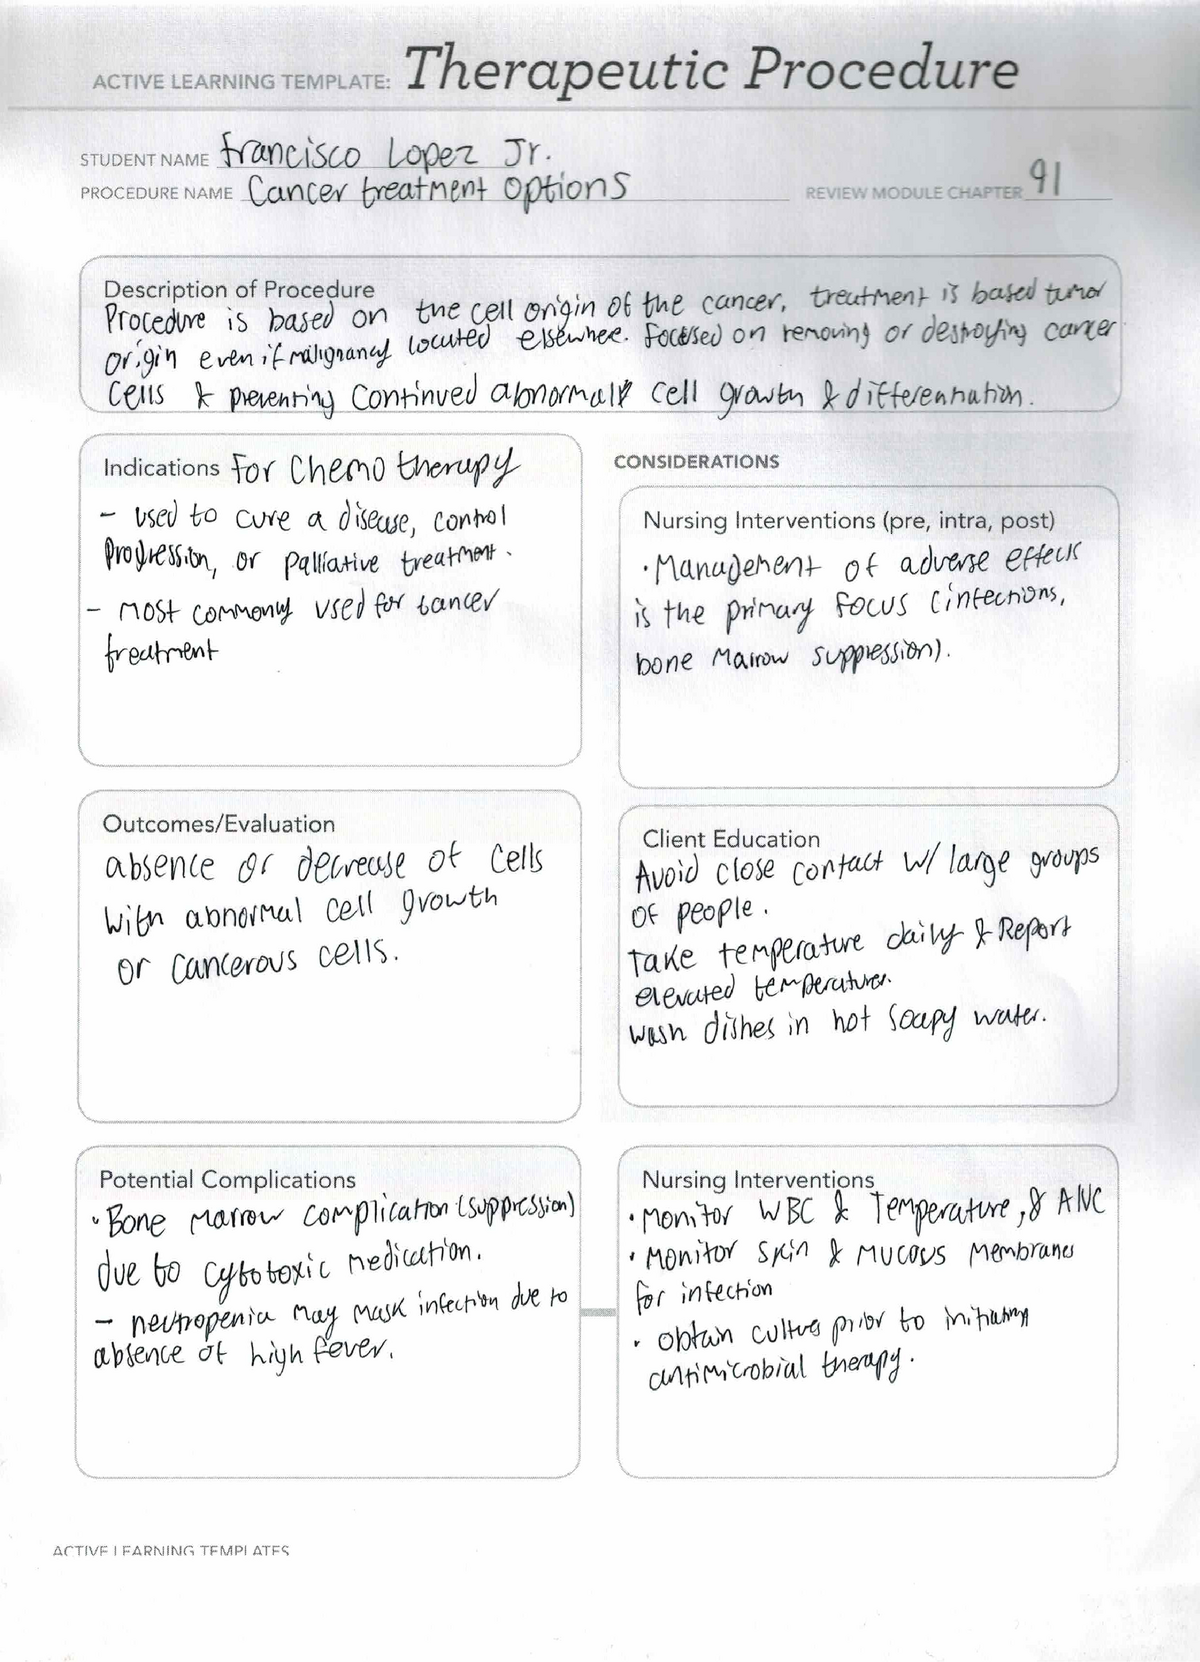 ACTIVE LEARNING TEMPLATE: Therapeutic Procedure
STUDENT NAME Francisco Lopez Jr.
PROCEDURE NAME Cancer treatment options
REVIEW MODULE CHAPTER 91
Description of Procedure
Procedure is based on the cell origin of the cancer, treatment is based tumor
origin even if malignancy located elsewhee. Focused on removing or destroying cancer
cells & preventing continued abnormal cell growth & differentiation.
Indications For chemotherapy
- used to cure a disease, control
progression, or palliative treatment.
- most commonly used for cancer
treatment
CONSIDERATIONS
Nursing Interventions (pre, intra, post)
• Management of adverse effects
is the primary focus (infections,
bone marrow suppression).
Outcomes/Evaluation
absence or decrease of cells
with abnormal cell growth
or cancerous cells.
Client Education
Avoid close contact w/ large groups
of people.
Take temperature daily & Report
elevated temperatures.
wash dishes in hot soapy water.
Potential Complications
• Bone marrow complication (suppression)
due to cytotoxic medication.
- neutropenia may mask infection due to
absence of high fever.
Nursing Interventions
• Monitor WBC & Temperature, & ANC
• Monitor skin & mucous membranes
for infection
• obtain cultures prior to initiating
antimicrobial therapy.
ACTIVE LEARNING TEMPLATES